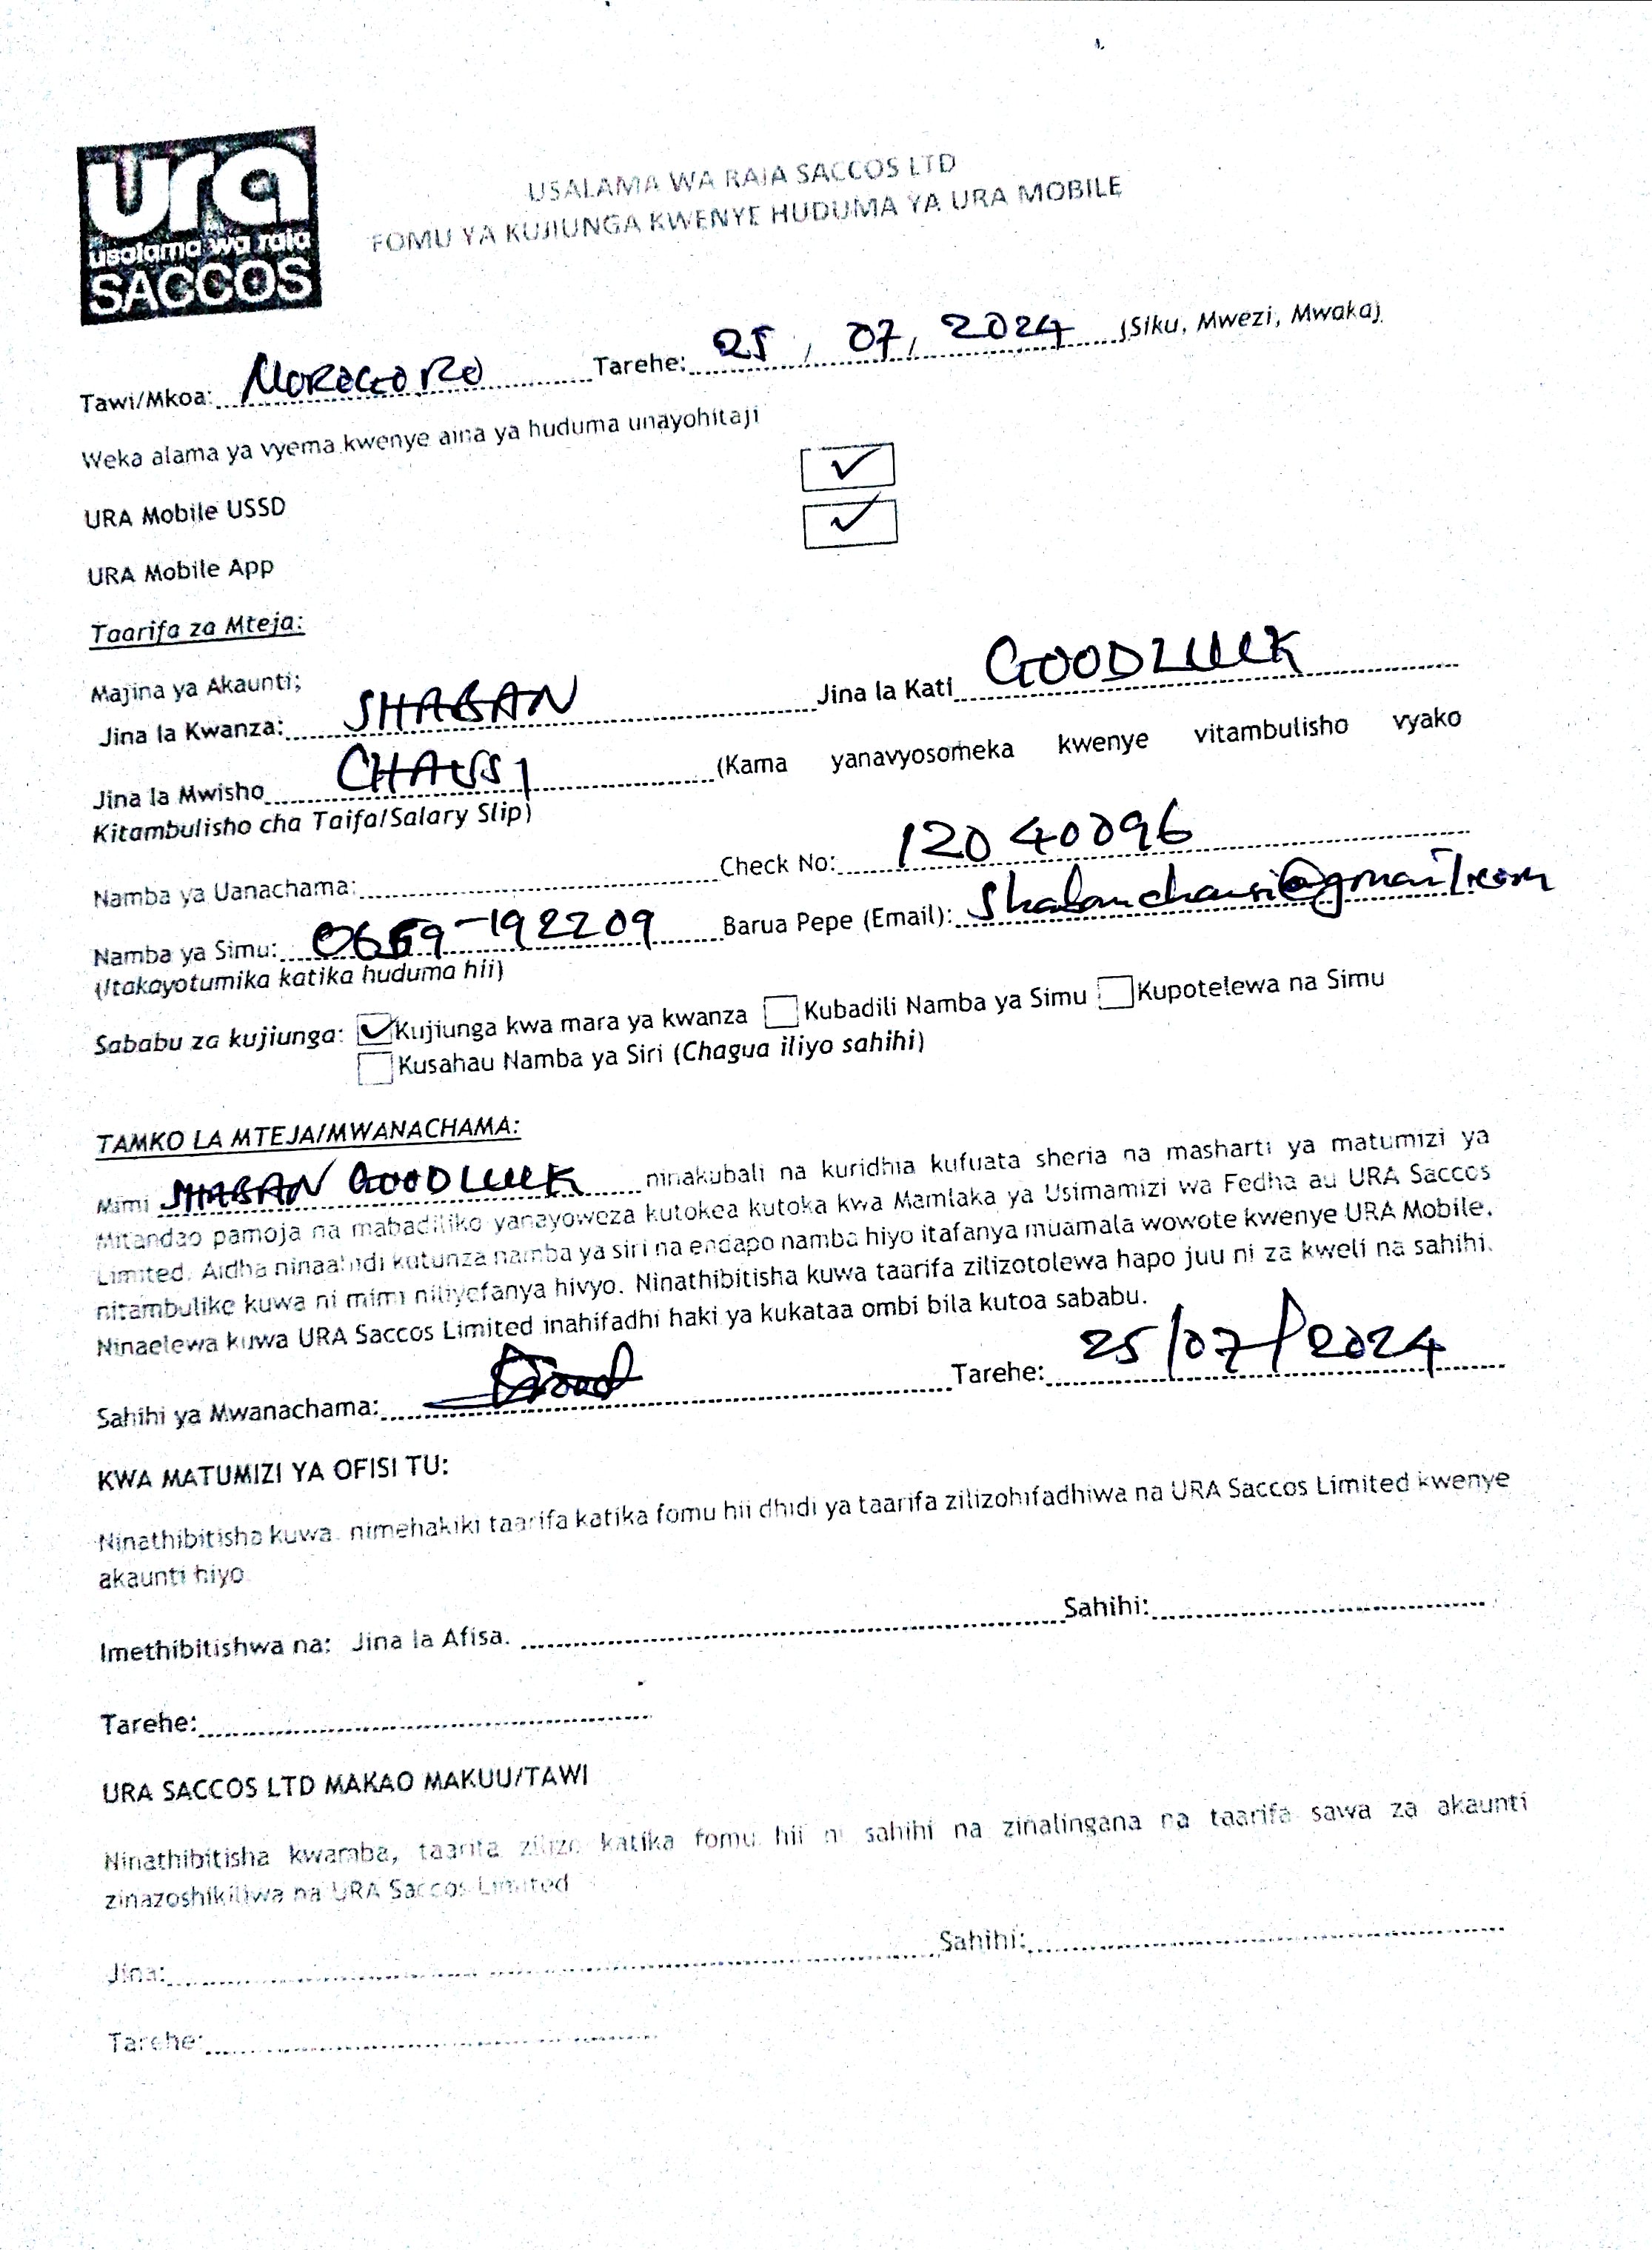 ura
usalama wa raia
SACCOS
USALAMA WA RAIA SACCOS LTD
FOMU YA KUJIUNGA KWENYE HUDUMA YA URA MOBILE
Tawi/Mkoa: MOROGORO Tarehe: 25, 07, 2024 (Siku, Mwezi, Mwaka)
Weka alama ya vyema kwenye aina ya huduma unayohitaji
URA Mobile USSD ✓
URA Mobile App ✓
Taarifa za Mteja:
Majina ya Akaunti;
Jina la Kwanza: SHABAN Jina la Kati GOODLUCK
Jina la Mwisho CHAUSI (Kama yanavyosomeka kwenye vitambulisho vyako
Kitambulisho cha Taifa/Salary Slip)
Namba ya Uanachama: Check No: 12040096
Namba ya Simu: -192209 Barua Pepe (Email): shabanchausi@gmail.com
(Itakayotumika katika huduma hii)
Sababu za kujiunga: ✓ Kujiunga kwa mara ya kwanza Kubadili Namba ya Simu Kupotelewa na Simu
Kusahau Namba ya Siri (Chagua iliyo sahihi)
TAMKO LA MTEJA/MWANACHAMA:
Mimi SHABAN GOODLUCK ninakubali na kuridhia kufuata sheria na masharti ya matumizi ya
Mitandao pamoja na mabadiliko yanayoweza kutokea kutoka kwa Mamlaka ya Usimamizi wa Fedha au URA Saccos
Limited. Aidha ninaahidi kutunza namba ya siri na endapo namba hiyo itafanya muamala wowote kwenye URA Mobile,
nitambulike kuwa ni mimi niliyefanya hivyo. Ninathibitisha kuwa taarifa zilizotolewa hapo juu ni za kweli na sahihi.
Ninaelewa kuwa URA Saccos Limited inahifadhi haki ya kukataa ombi bila kutoa sababu.
Sahihi ya Mwanachama: Tarehe: 25/07/2024
KWA MATUMIZI YA OFISI TU:
Ninathibitisha kuwa, nimehakiki taarifa katika fomu hii dhidi ya taarifa zilizohifadhiwa na URA Saccos Limited kwenye
akaunti hiyo
Imethibitishwa na: Jina la Afisa. Sahihi:
Tarehe:
URA SACCOS LTD MAKAO MAKUU/TAWI
Ninathibitisha kwamba, taarifa zilizo katika fomu hii ni sahihi na zinalingana na taarifa sawa za akaunti
zinazoshikiliwa na URA Saccos Limited
Jina: Sahihi:
Tarehe: